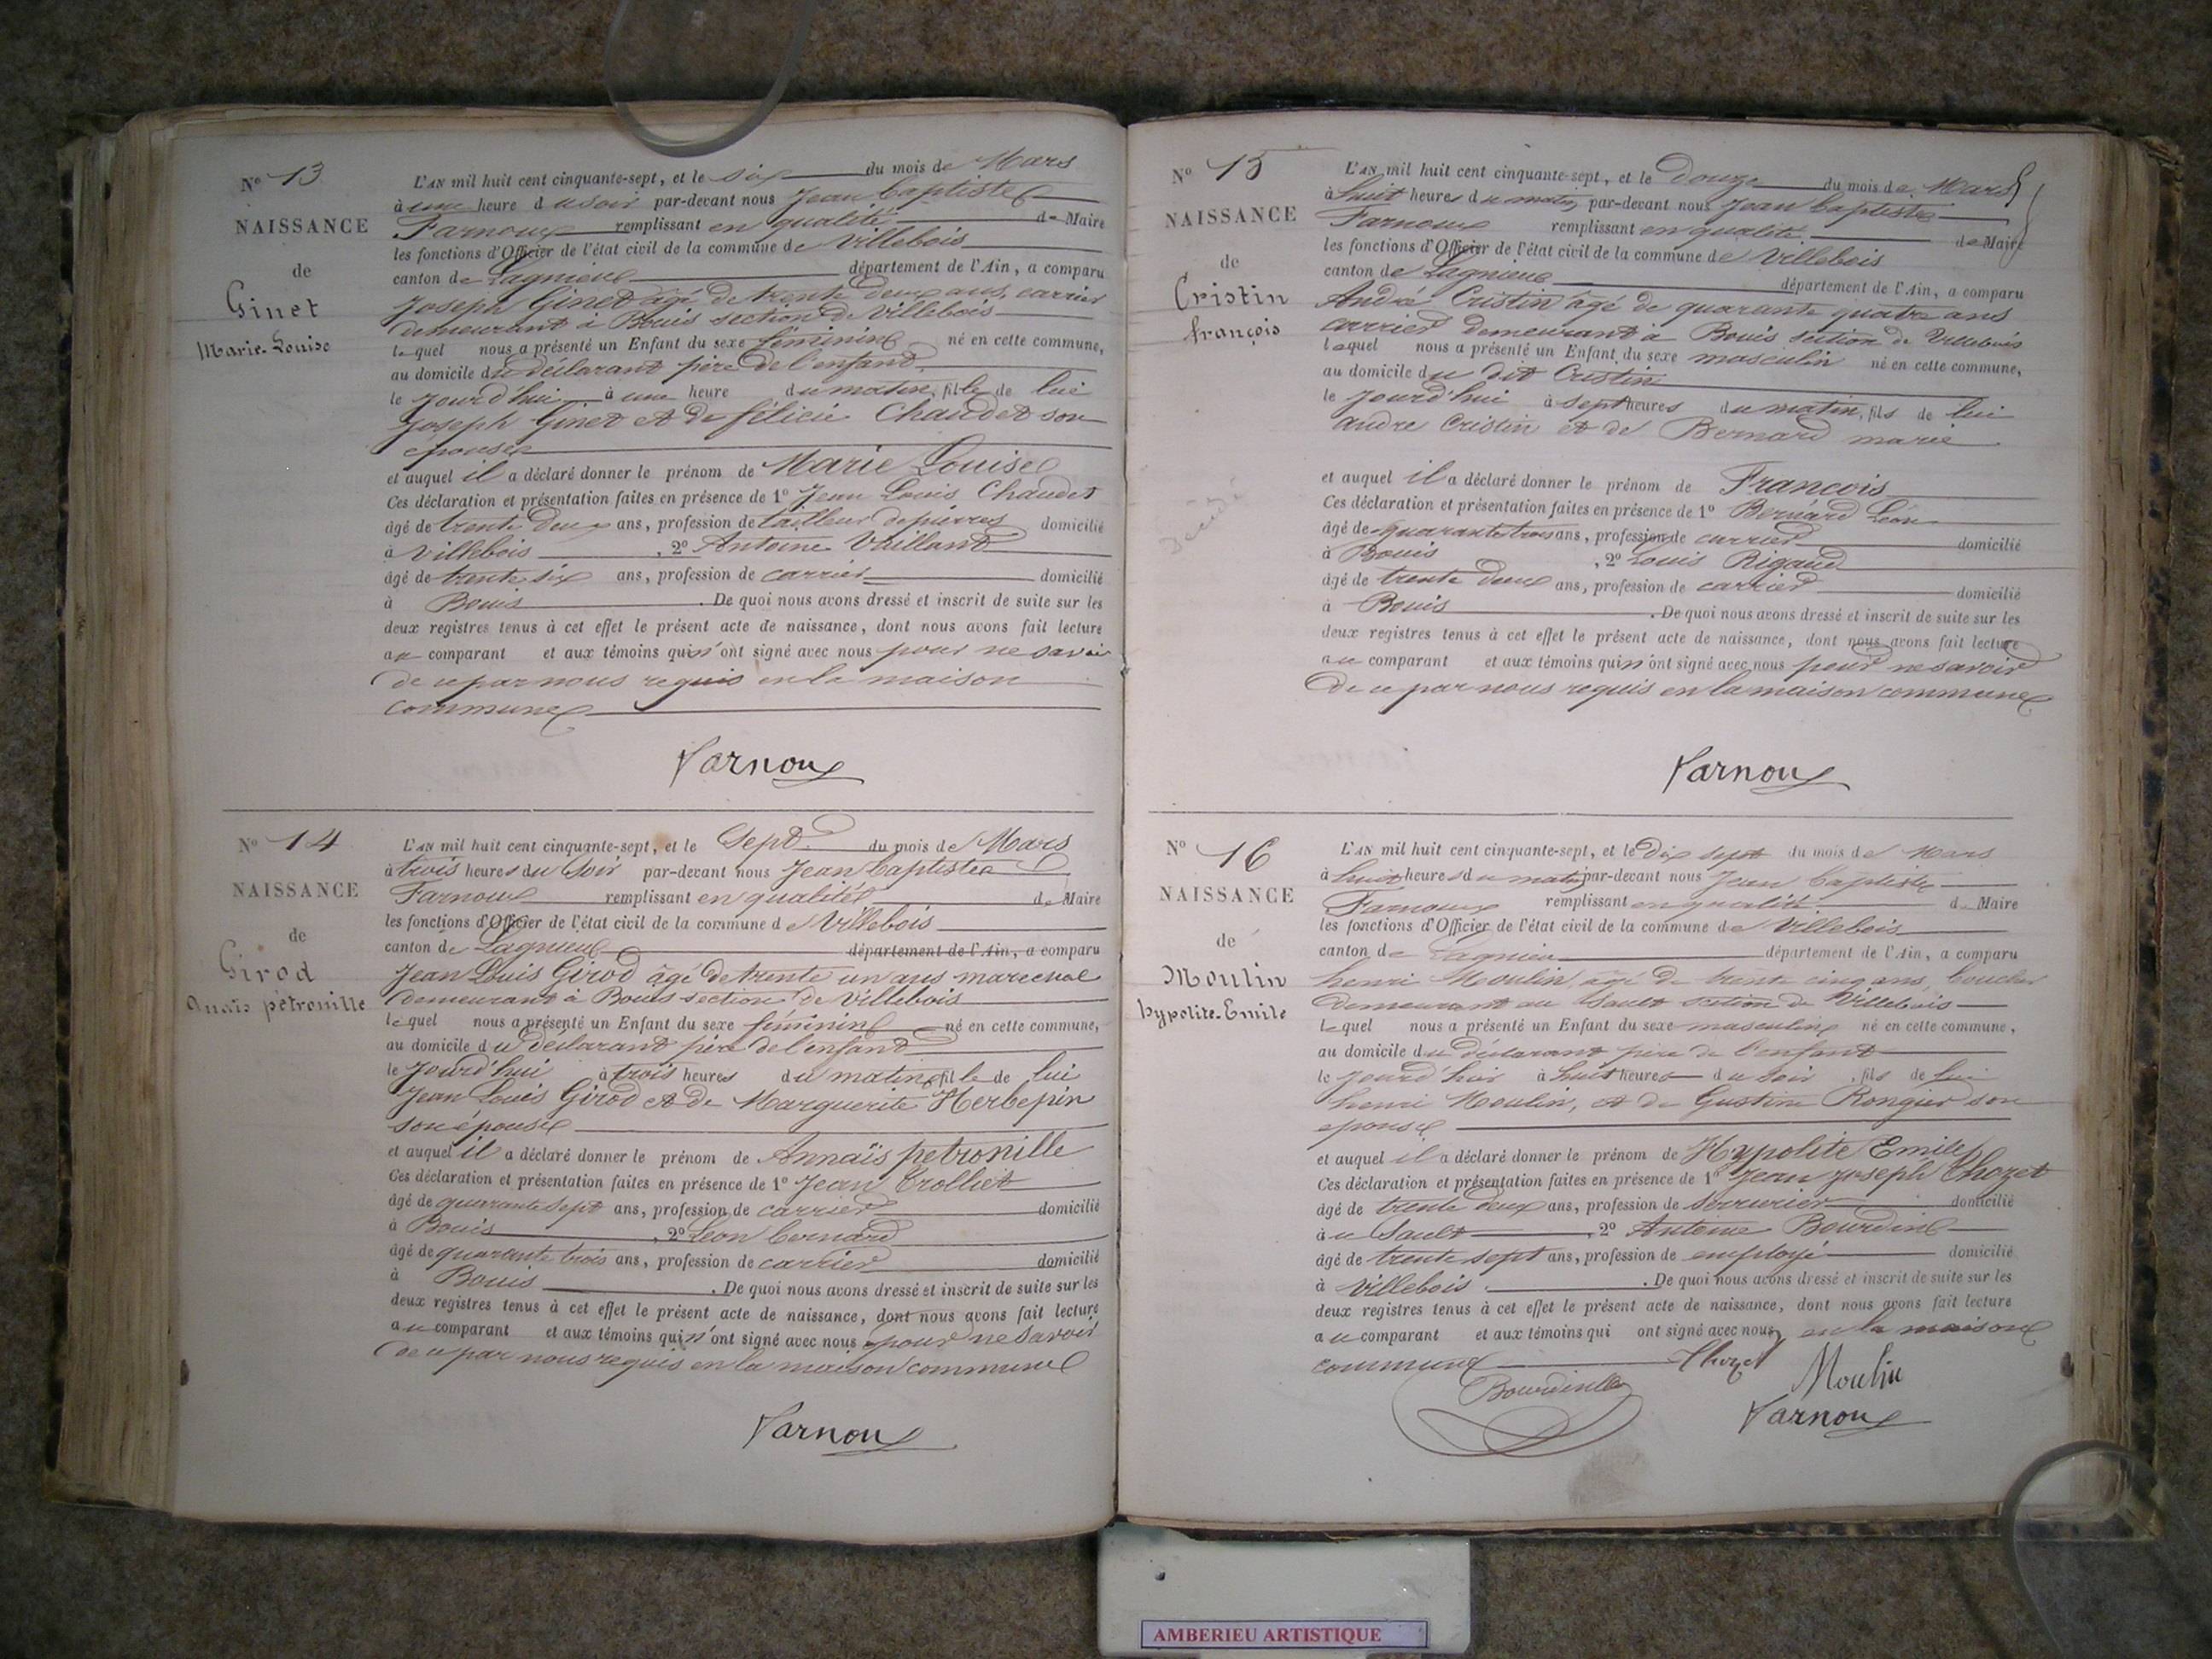 N° 13
NAISSANCE
de
Ginet
Marie-Louise
L'AN mil huit cent cinquante-sept, et le six du mois de Mars
à une heure du soir par-devant nous Jean baptiste
Farnoux remplissant en qualité de Maire
les fonctions d'Officier de l'état civil de la commune de Villebois
canton de Lagnieu département de l'Ain, a comparu
Joseph Ginet âgé de trente deux ans, carrier
demeurant à Bouis section de Villebois
lequel nous a présenté un Enfant du sexe féminin né en cette commune,
au domicile du déclarant père de l'enfant
le jourd'hui à une heure du matin, fille de lui
Joseph Ginet et de félicie Chaudet son
épouse
et auquel il a déclaré donner le prénom de Marie Louise
Ces déclaration et présentation faites en présence de 1° Jean Louis Chaudet
âgé de trente deux ans, profession de tailleur de pierres domicilié
à Villebois, 2° Antoine Vaillant
âgé de trante six ans, profession de carrier domicilié
à Bouis. De quoi nous avons dressé et inscrit de suite sur les
deux registres tenus à cet effet le présent acte de naissance, dont nous avons fait lecture
au comparant et aux témoins qui n'ont signé avec nous pour ne savoir
de ce par nous requis en la maison
commune
Farnoux
N° 14
NAISSANCE
de
Girod
Anaïs pétronille
L'AN mil huit cent cinquante-sept, et le Sept du mois de Mars
à trois heures du Soir par-devant nous Jean baptiste
Farnoux remplissant en qualité de Maire
les fonctions d'Officier de l'état civil de la commune de Villebois
canton de Lagnieu département de l'Ain, a comparu
Jean Louis Girod âgé de trente un ans marechal
demeurant à Bouis section de Villebois
lequel nous a présenté un Enfant du sexe féminin né en cette commune,
au domicile du déclarant père de l'enfant
le jourd'hui à trois heures du matin fille de lui
Jean Louis Girod et de Marguerite Herbepin
son épouse
et auquel il a déclaré donner le prénom de Annaïs petronille
Ces déclaration et présentation faites en présence de 1° Jean Trolliet
âgé de quarante sept ans, profession de carrier domicilié
à Bouis, 2° Léon bernard
âgé de quarante trois ans, profession de carrier domicilié
à Bouis. De quoi nous avons dressé et inscrit de suite sur les
deux registres tenus à cet effet le présent acte de naissance, dont nous avons fait lecture
au comparant et aux témoins qui n'ont signé avec nous pour ne savoir
de ce par nous requis en la maison commune
Farnoux
N° 15
NAISSANCE
de
Cristin
françois
L'AN mil huit cent cinquante-sept, et le douze du mois de Mars
à huit heures du matin par-devant nous Jean baptiste
Farnoux remplissant en qualité de Maire
les fonctions d'Officier de l'état civil de la commune de Villebois
canton de Lagnieu département de l'Ain, a comparu
André Cristin âgé de quarante quatre ans
carrier demeurant à Bouis section de Villebois
lequel nous a présenté un Enfant du sexe masculin né en cette commune,
au domicile du dit Cristin
le jourd'hui à sept heures du matin, fils de lui
andre Cristin et de Bernard marie
et auquel il a déclaré donner le prénom de François
Ces déclaration et présentation faites en présence de 1° Bernard Léon
âgé de quarante trois ans, profession de carrier domicilié
à Bouis, 2° Louis Rigaud
âgé de trente deux ans, profession de carrier domicilié
à Bouis. De quoi nous avons dressé et inscrit de suite sur les
deux registres tenus à cet effet le présent acte de naissance, dont nous avons fait lecture
au comparant et aux témoins qui n'ont signé avec nous pour ne savoir
de ce par nous requis en la maison commune
Farnoux
N° 16
NAISSANCE
de
Moulin
hypolite-Emile
L'AN mil huit cent cinquante-sept, et le dix sept du mois de Mars
à huit heures du matin par-devant nous Jean baptiste
Farnoux remplissant en qualité de Maire
les fonctions d'Officier de l'état civil de la commune de Villebois
canton de Lagnieu département de l'Ain, a comparu
henri Moulin, âgé de trente cinq ans, boucher
demeurant au Sault section de Villebois
lequel nous a présenté un Enfant du sexe masculin né en cette commune,
au domicile du déclarant père de l'enfant
le jourd'hui à huit heures du soir, fils de lui
henri Moulin, et de Gustine Rongier son
épouse
et auquel il a déclaré donner le prénom de Hypolite Emile
Ces déclaration et présentation faites en présence de 1° Jean Joseph Chozet
âgé de trente deux ans, profession de serrurier domicilié
au Sault 2° Antoine Bourdin
âgé de trente sept ans, profession de employé domicilié
à Villebois. De quoi nous avons dressé et inscrit de suite sur les
deux registres tenus à cet effet le présent acte de naissance, dont nous avons fait lecture
au comparant et aux témoins qui ont signé avec nous en la maison
commune Chozet
Bourdin Moulin
Farnoux
AMBERIEU ARTISTIQUE